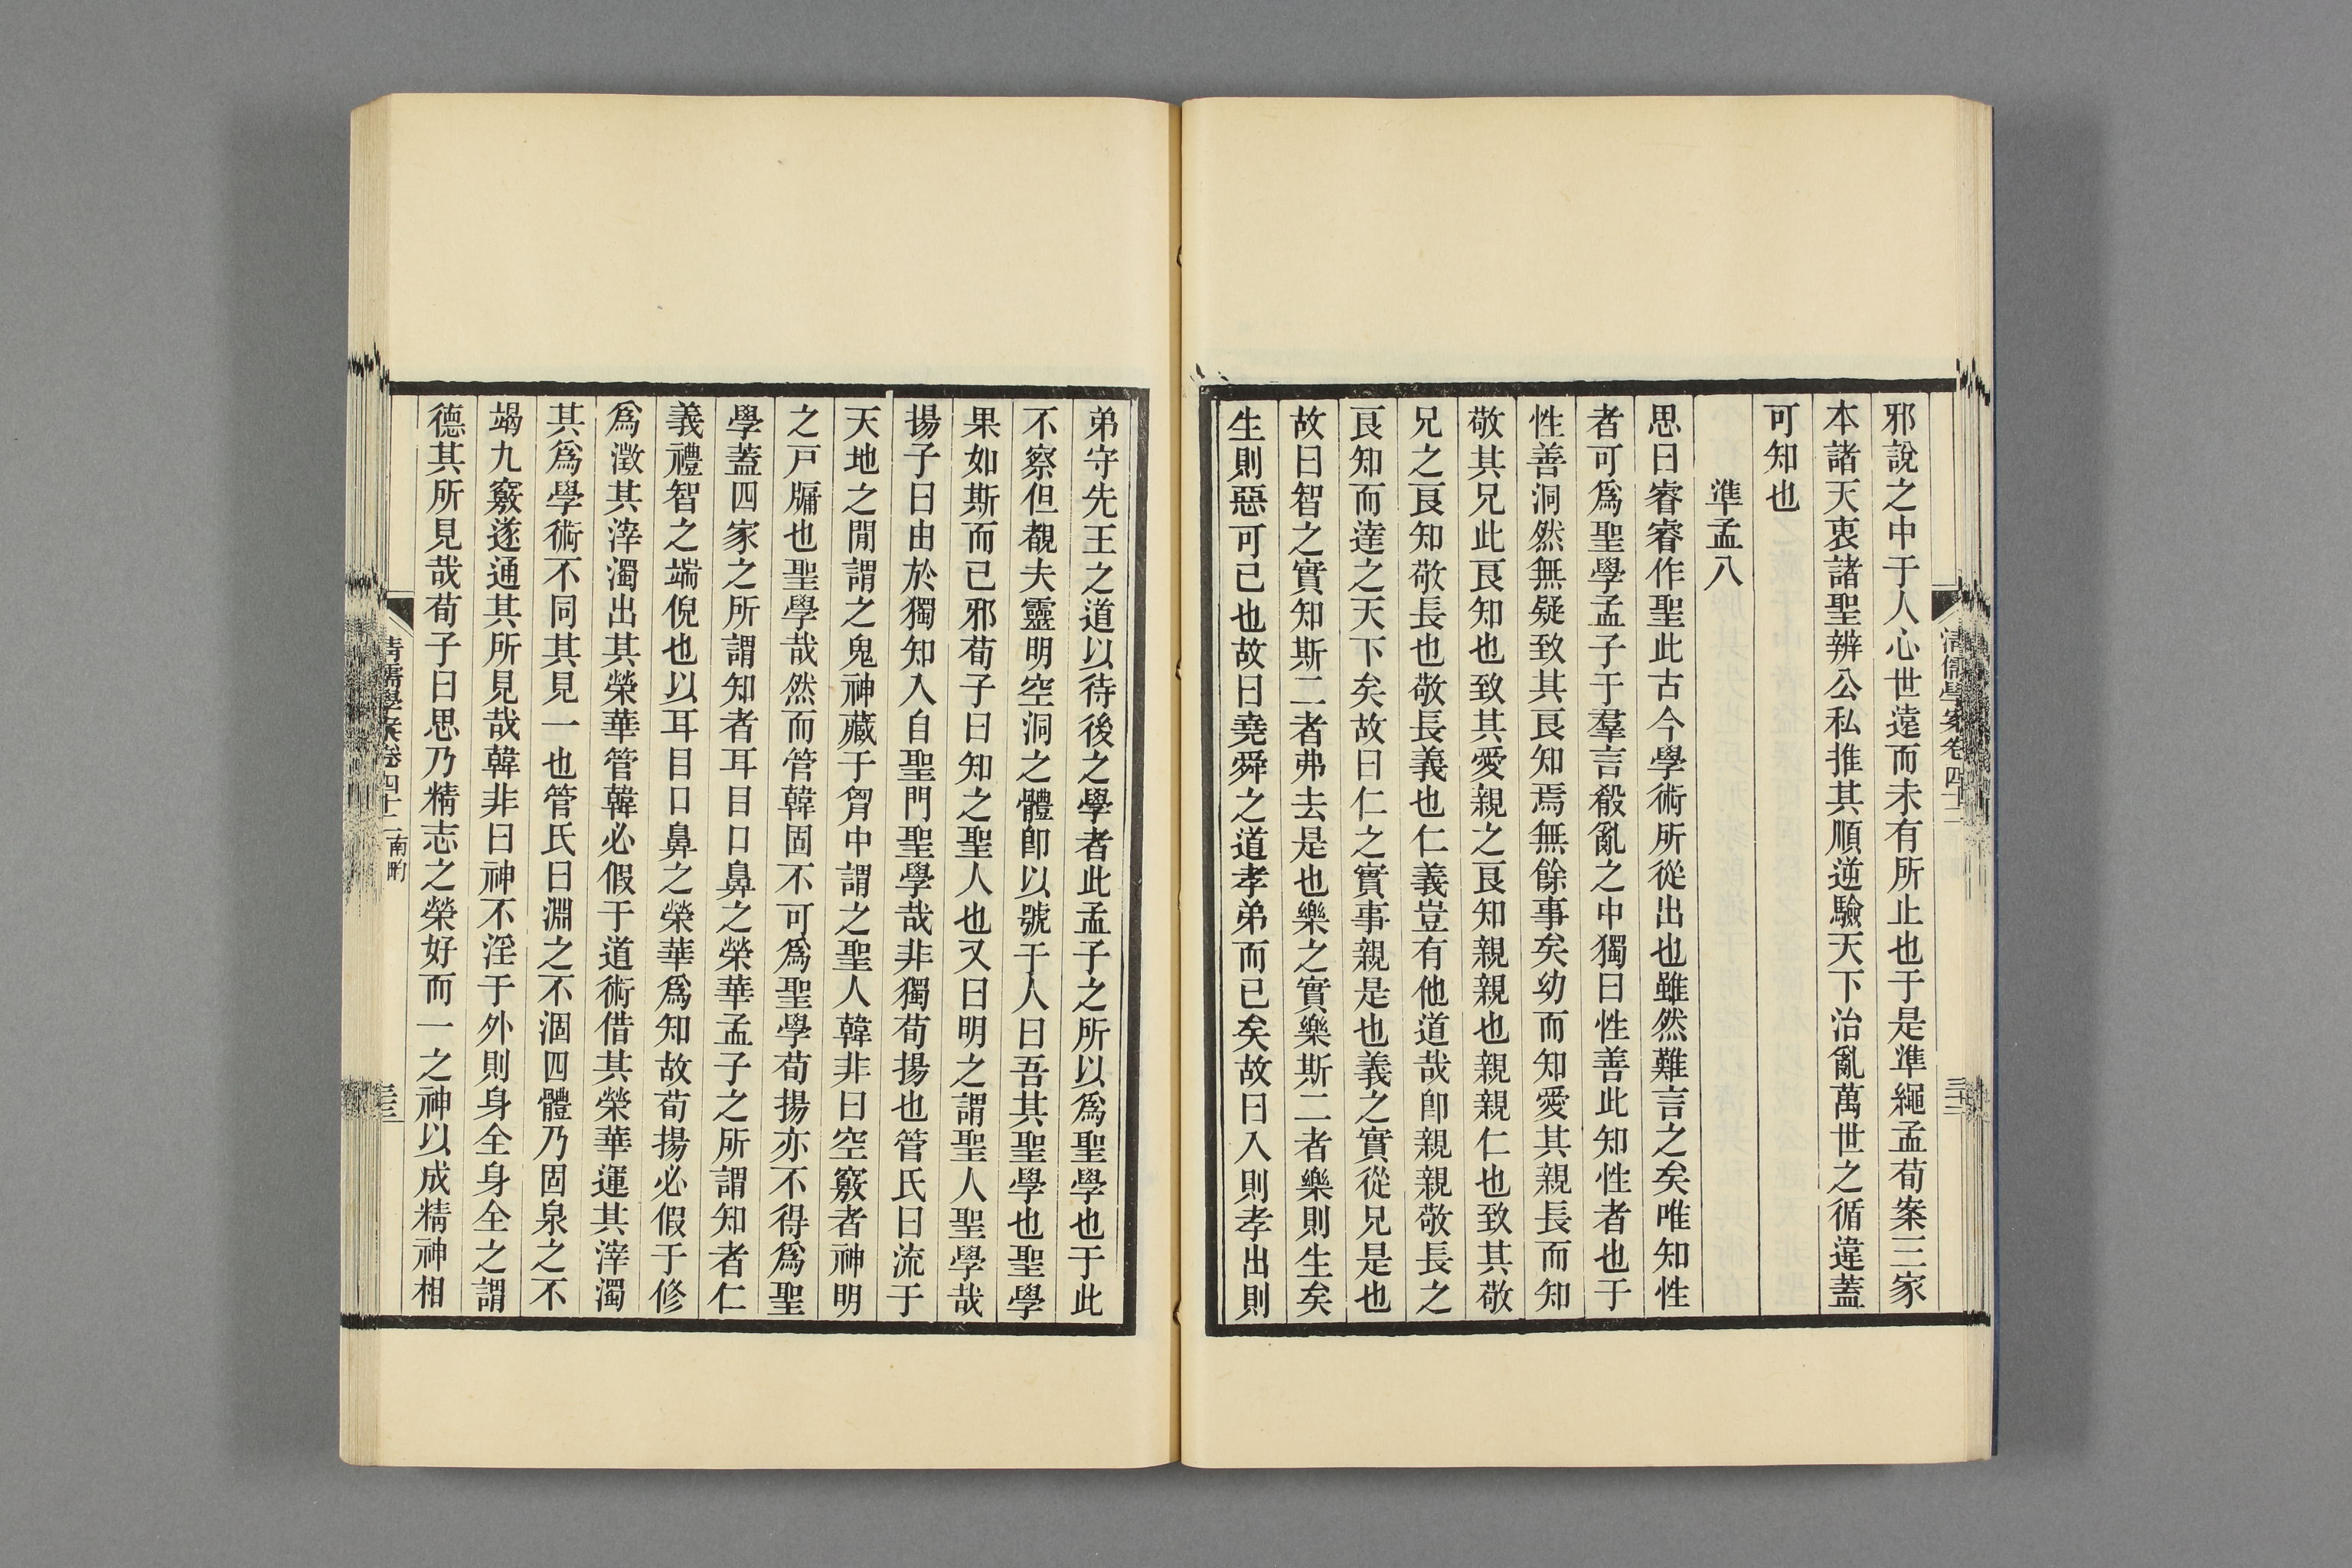 邪說之中于人心世遠而未有所止也于是準繩孟荀案三家
本諸天衷諸聖辨公私推其順逆驗天下治亂萬世之循違蓋
可知也
準孟八
思曰睿睿作聖此古今學術所從出也雖然難言之矣唯知性
者可爲聖學孟子于羣言殽亂之中獨曰性善此知性者也于
性善洞然無疑致其良知焉無餘事矣幼而知愛其親長而知
敬其兄此良知也致其愛親之良知親親也親親仁也致其敬
兄之良知敬長也敬長義也仁義豈有他道哉卽親親敬長之
良知而達之天下矣故曰仁之實事親是也義之實從兄是也
故曰智之實知斯二者弗去是也樂之實樂斯二者樂則生矣
生則惡可已也故曰堯舜之道孝弟而已矣故曰入則孝出則
清儒學案卷四十二
三十二
弟守先王之道以待後之學者此孟子之所以爲聖學也于此
不察但覩夫靈明空洞之體卽以號于人曰吾其聖學也聖學
果如斯而已邪荀子曰知之聖人也又曰明之謂聖人聖學哉
揚子曰由於獨知入自聖門聖學哉非獨荀揚也管氏曰流于
天地之閒謂之鬼神藏于胷中謂之聖人韓非曰空竅者神明
之戸牖也聖學哉然而管韓固不可爲聖學荀揚亦不得爲聖
學蓋四家之所謂知者耳目口鼻之榮華孟子之所謂知者仁
義禮智之端倪也以耳目口鼻之榮華爲知故荀揚必假于修
爲澂其滓濁出其榮華管韓必假于道術借其榮華運其滓濁
其爲學術不同其見一也管氏曰淵之不涸四體乃固泉之不
竭九竅遂通其所見哉韓非曰神不淫于外則身全身全之謂
德其所見哉荀子曰思乃精志之榮好而一之神以成精神相
清儒學案卷四十二 南畇
三十三